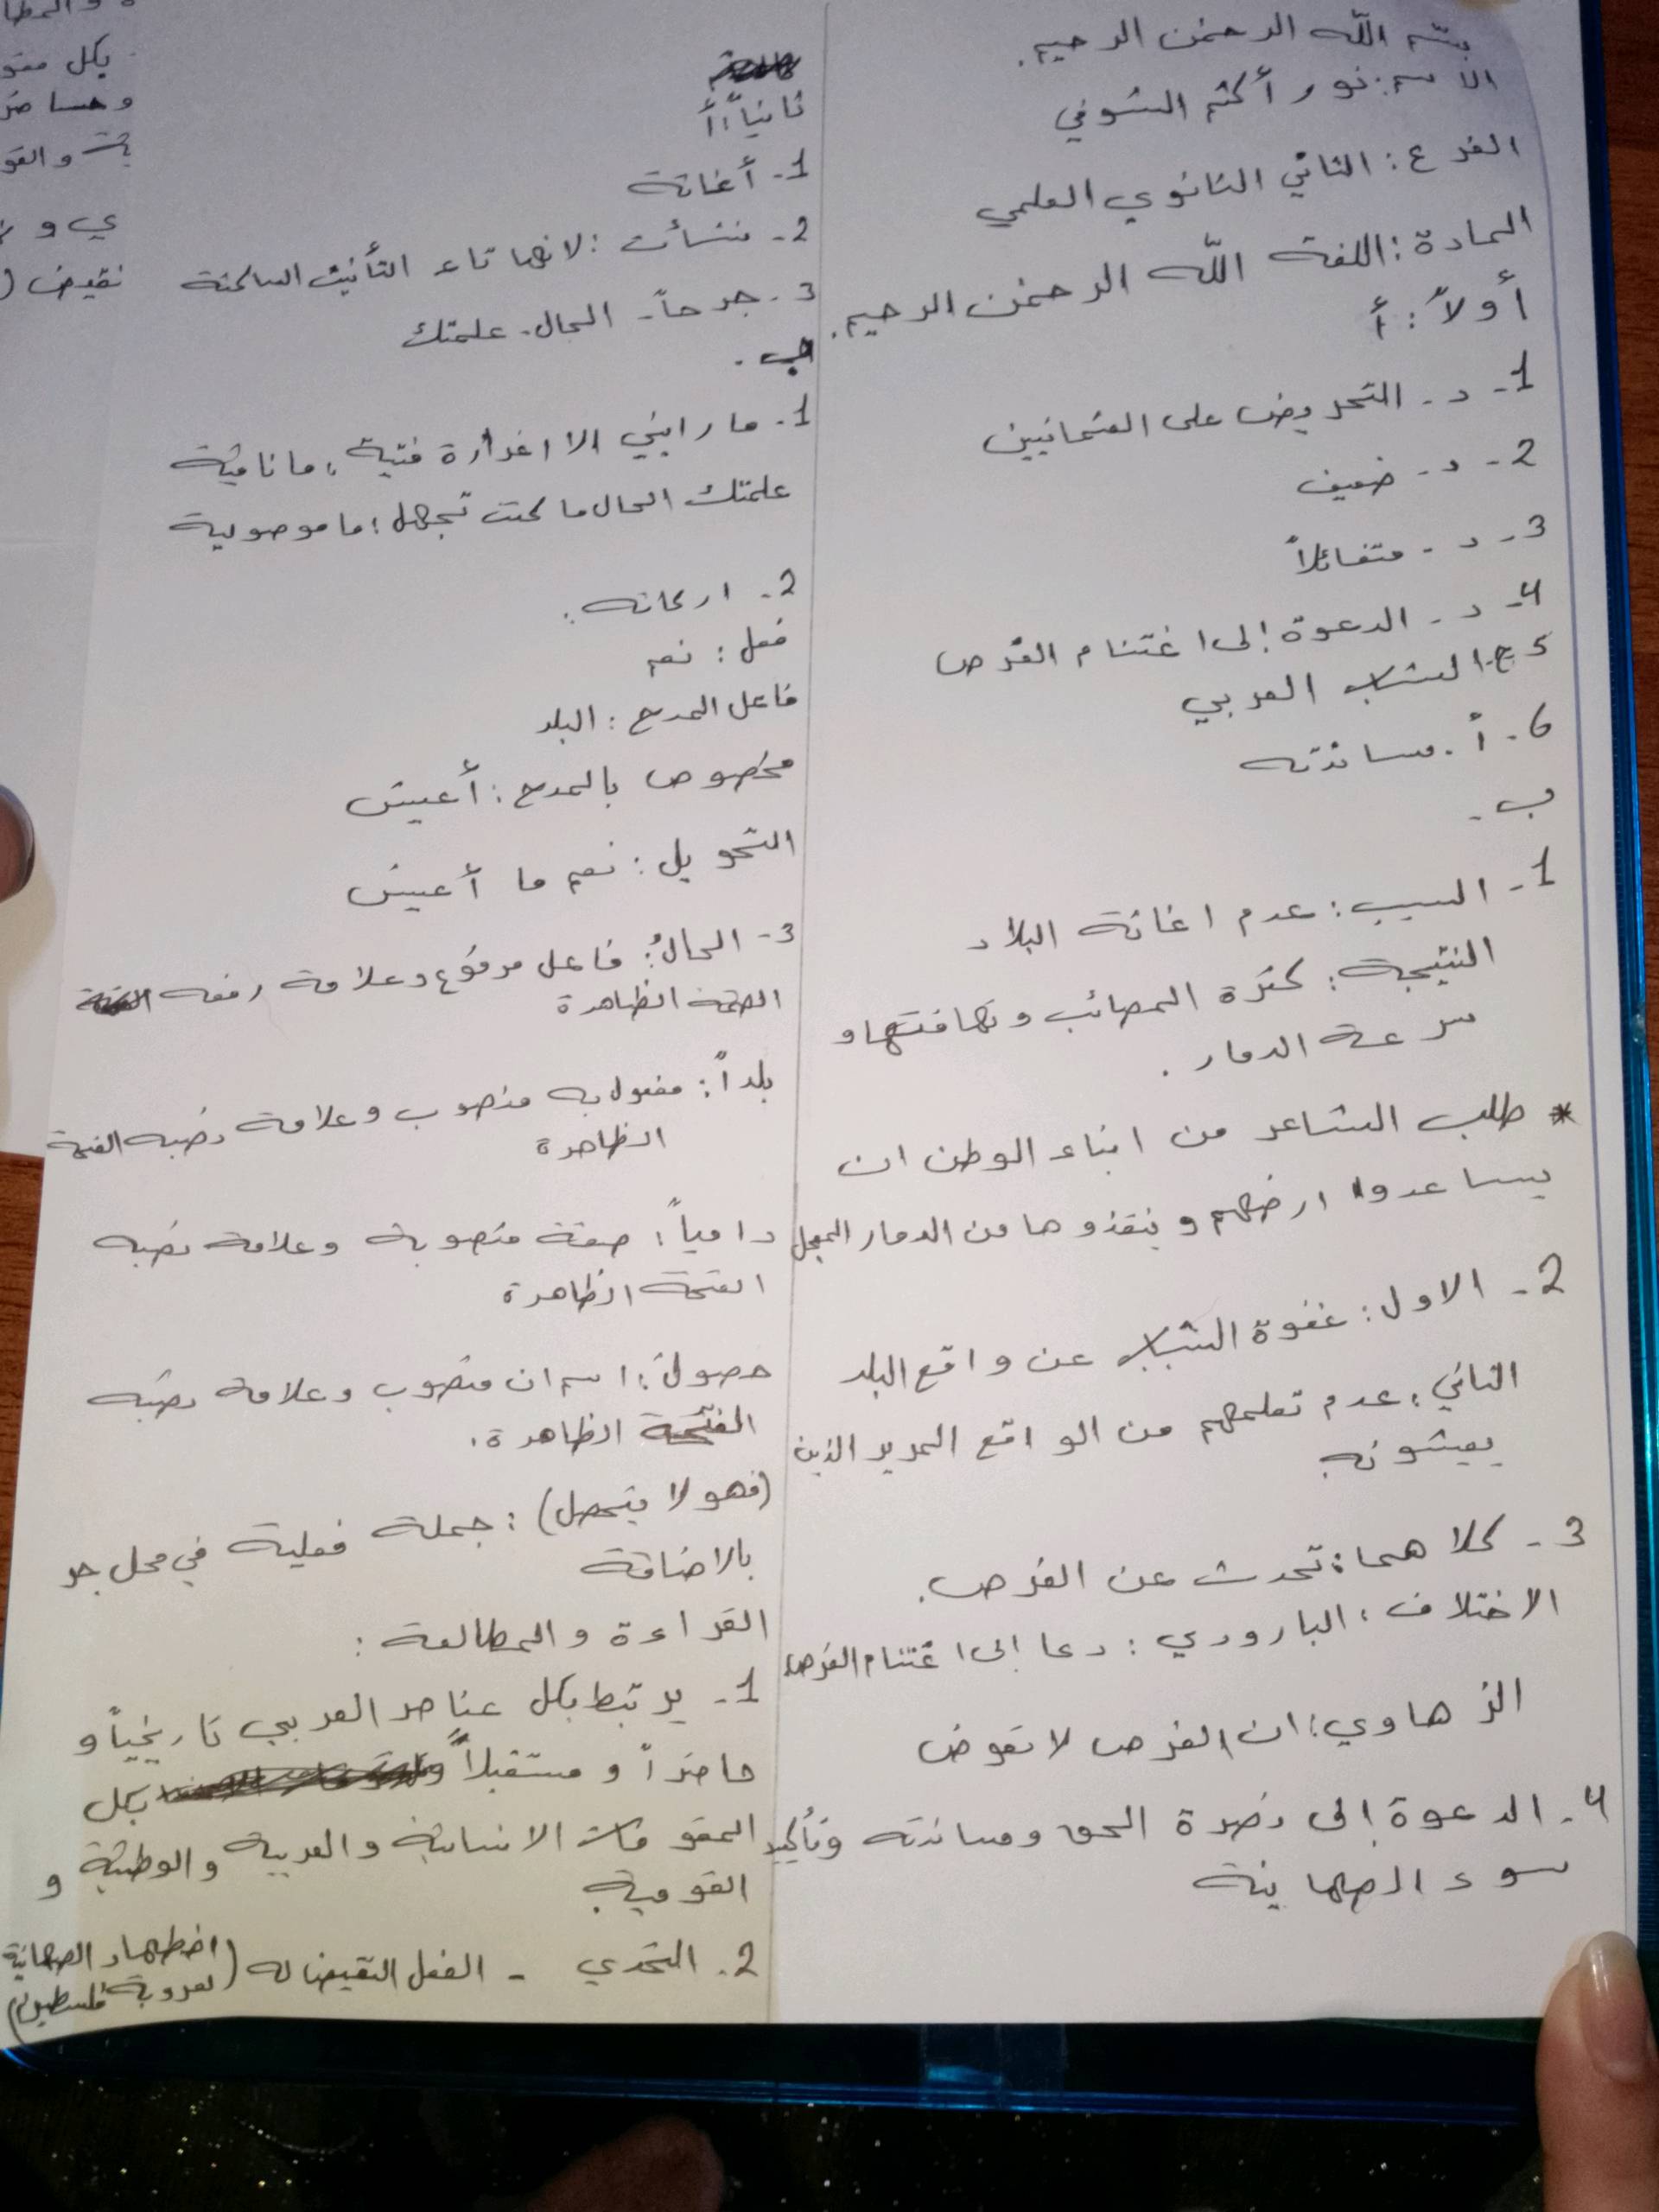 بسم الله الرحمن الرحيم.
الاسم: نور أكثم الشوفي
الفرع: الثاني الثانوي العلمي
المادة: اللغة الله الرحمن الرحيم.
أولاً: أ
1- د- التحريض على العثمانيين
2- د- ضعيف
3- د- متفائلاً
4- د- الدعوة إلى اغتنام الفرص
5 ج- الشباب العربي
6- أ- مساندته
ب-
1- السبب: عدم اغاثة البلاد
النتيجة: كثرة المصائب وتهافتها و
سرعة الدمار.
* طلب الشاعر من ابناء الوطن ان
يساعدوا ارضهم وينقذوها من الدمار المعجل
2- الاول: غفوة الشباب عن واقع البلد
الثاني: عدم تعلمهم من الواقع المرير الذين
يعيشونه
3- كلاهما: تحدث عن الفرص.
الاختلاف: البارودي: دعا إلى اغتنام الفرص
الزهاوي: ان الفرص لا تعوض
4- الدعوة إلى نصرة الحق ومساندته وتأكيد
سوء الصهاينة
ثانياً: أ
1- أغاثة
2- ننسأت: لانها تاء التأنيث الساكنة
3- جرحاً- الحال- علمتك
ب-
1- ما رابني الا اغرارة فتية: ما نافية
علمتك الحال ما كنت تجهل: ما موصولية
2- اركانه:
فعل: نعم
فاعل المدح: البلد
مخصوص بالمدح: أعيش
التحويل: نعم ما أعيش
3- الحالُ: فاعل مرفوع وعلامة رفعه
الضمة الظاهرة
بلداً: مفعول به منصوب وعلامة نصبه الفتحة
الظاهرة
دامياً: صفة منصوبة وعلامة نصبه
الفتحة الظاهرة
حصولَ: اسم ان منصوب وعلامة نصبه
الفتحة الظاهرة.
(فهو لا يتحصل): جملة فعلية في محل جر
بالاضافة
القراءة والمطالعة:
1- يرتبط بكل عناصر العربي تاريخياً و
حاضراً ومستقبلاً بكل
المقومات الانسانية والعربية والوطنية و
القومية
2- التحدي - الفعل النقيض له (اضطهاد الصهاينة
لعروبة فلسطين)
بكل مقو
وحساضر
والقو
ي و
نقيض (